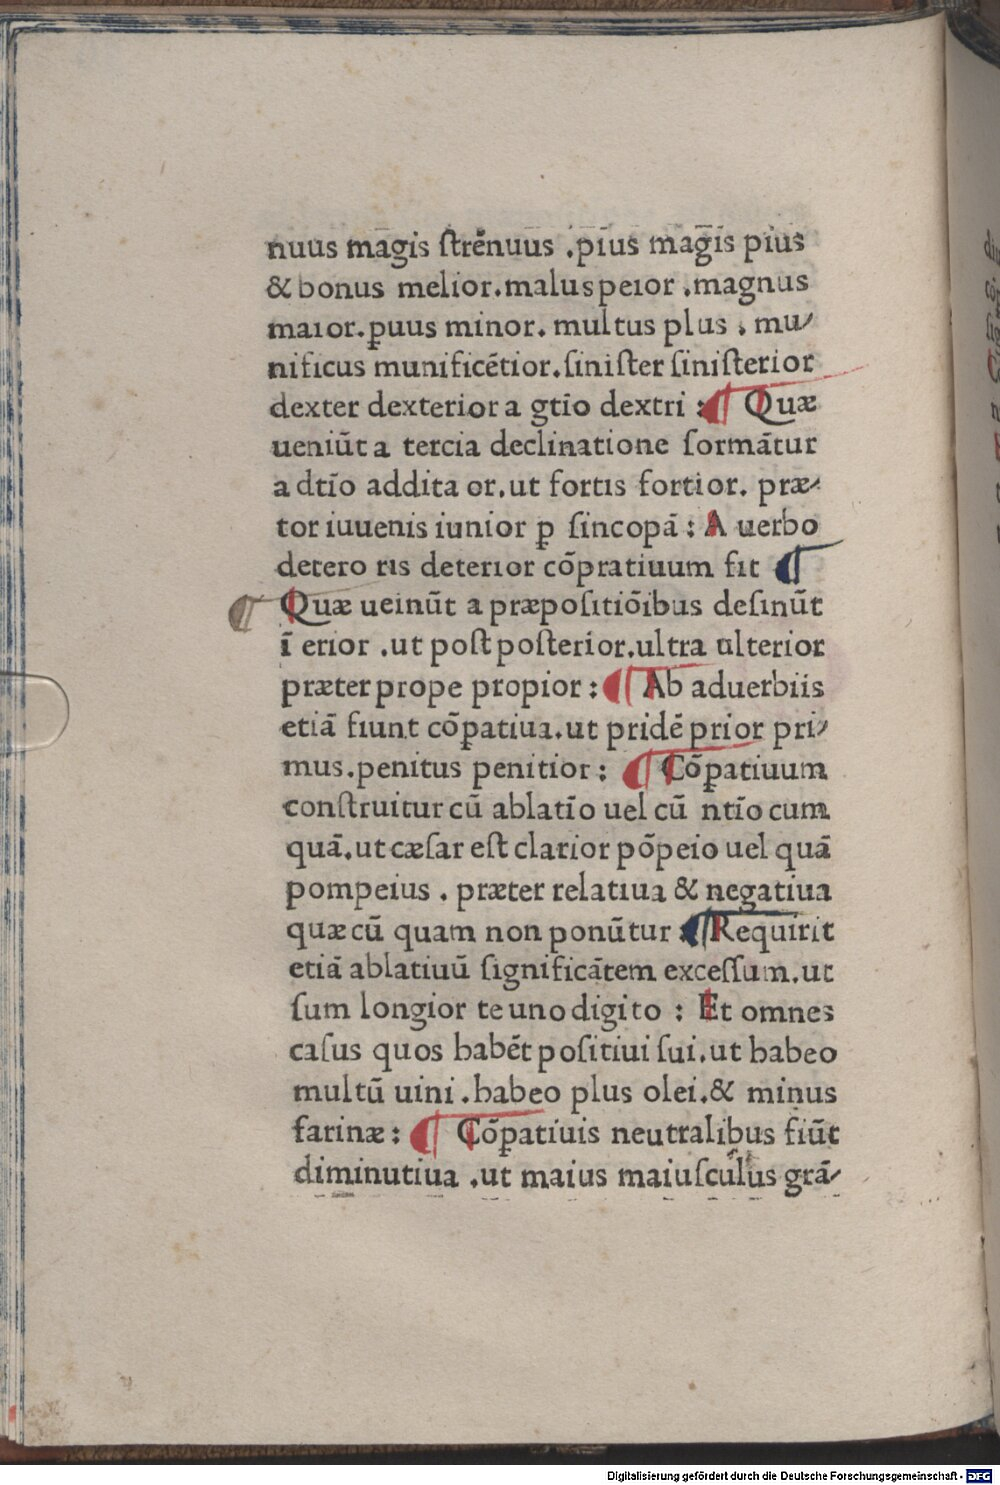 nuus magis ſtrēnuus .pius magis pius
& bonus melior.malus peıor .magnus
maıor.ꝑuus minor. multus plus . mu⸗
nificus munificētior.ſiniſter ſiniſterior
dexter dexterior a gtīo dextri : ¶ Quæ
ueniūt a tercia declinatione formātur
a dtīo addita or.ut fortis fortior. præ⸗
tor iuuenis iunior ꝑ ſincopā : A uerbo
detero ris deterior cōpratiuum fit ¶
¶ Quæ ueinūt a præpoſitiōibus deſinūt
ī erior .ut poſt poſterior.ultra ulterior
præter prope propior : ¶ Ab aduerbiis
etiā fiunt cōpatiua.ut pridē prior pri⸗
mus.penitus penitior : ¶ Cōpatiuum
conſtruitur cū ablatīo uel cū ntīo cum
quā.ut cæſar eſt clarior pōpeio uel quā
pompeius . præter relatiua & negatiua
quæ cū quam non ponūtur : ¶ Requirit
etiā ablatiuū ſignificātem exceſſum.ut
ſum longior te uno digito : Et omnes
caſus quos habēt poſitiui ſui.ut habeo
multū uini .habeo plus olei.& minus
farinæ : ¶ Cōpatiuis neutralibus fiūt
diminutiua .ut maius maiuſculus grā⸗
Digitalisierung gefördert durch die Deutsche Forschungsgemeinschaft - DFG